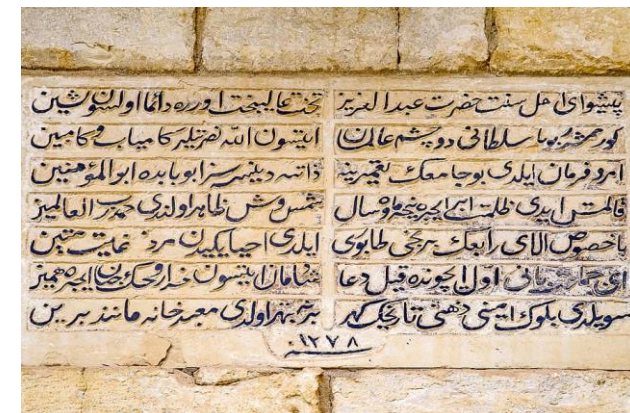 پیشوای اهل سنت حضرت عبد العزیز تخت عالیبخت اوزره دائما اولسون
سلطانی دو چشم عالمان ایتسون الله کامیاب و کامبین
امر و فرمان ایلدی بو جامعك تعمیرینه ذاتنه دینسه سزا بو بابده ابو المؤمنین
قالمش ایدی ظلمت ایچره نیجه ماه و سال شمس وش ظاهر اولدی حمد رب العالمین
باخصوص الای رابعك برنجی طابوری ایلدی احیا یکیدن متین
ای اول ایچونده قیل دعا شادمان ایتسون خدا روحك ایچره همین
سویلدی بلوك امینی ذهنی تاریخك گهر اولدی معبدخانه مانند برین
سنه ١٢٧٨